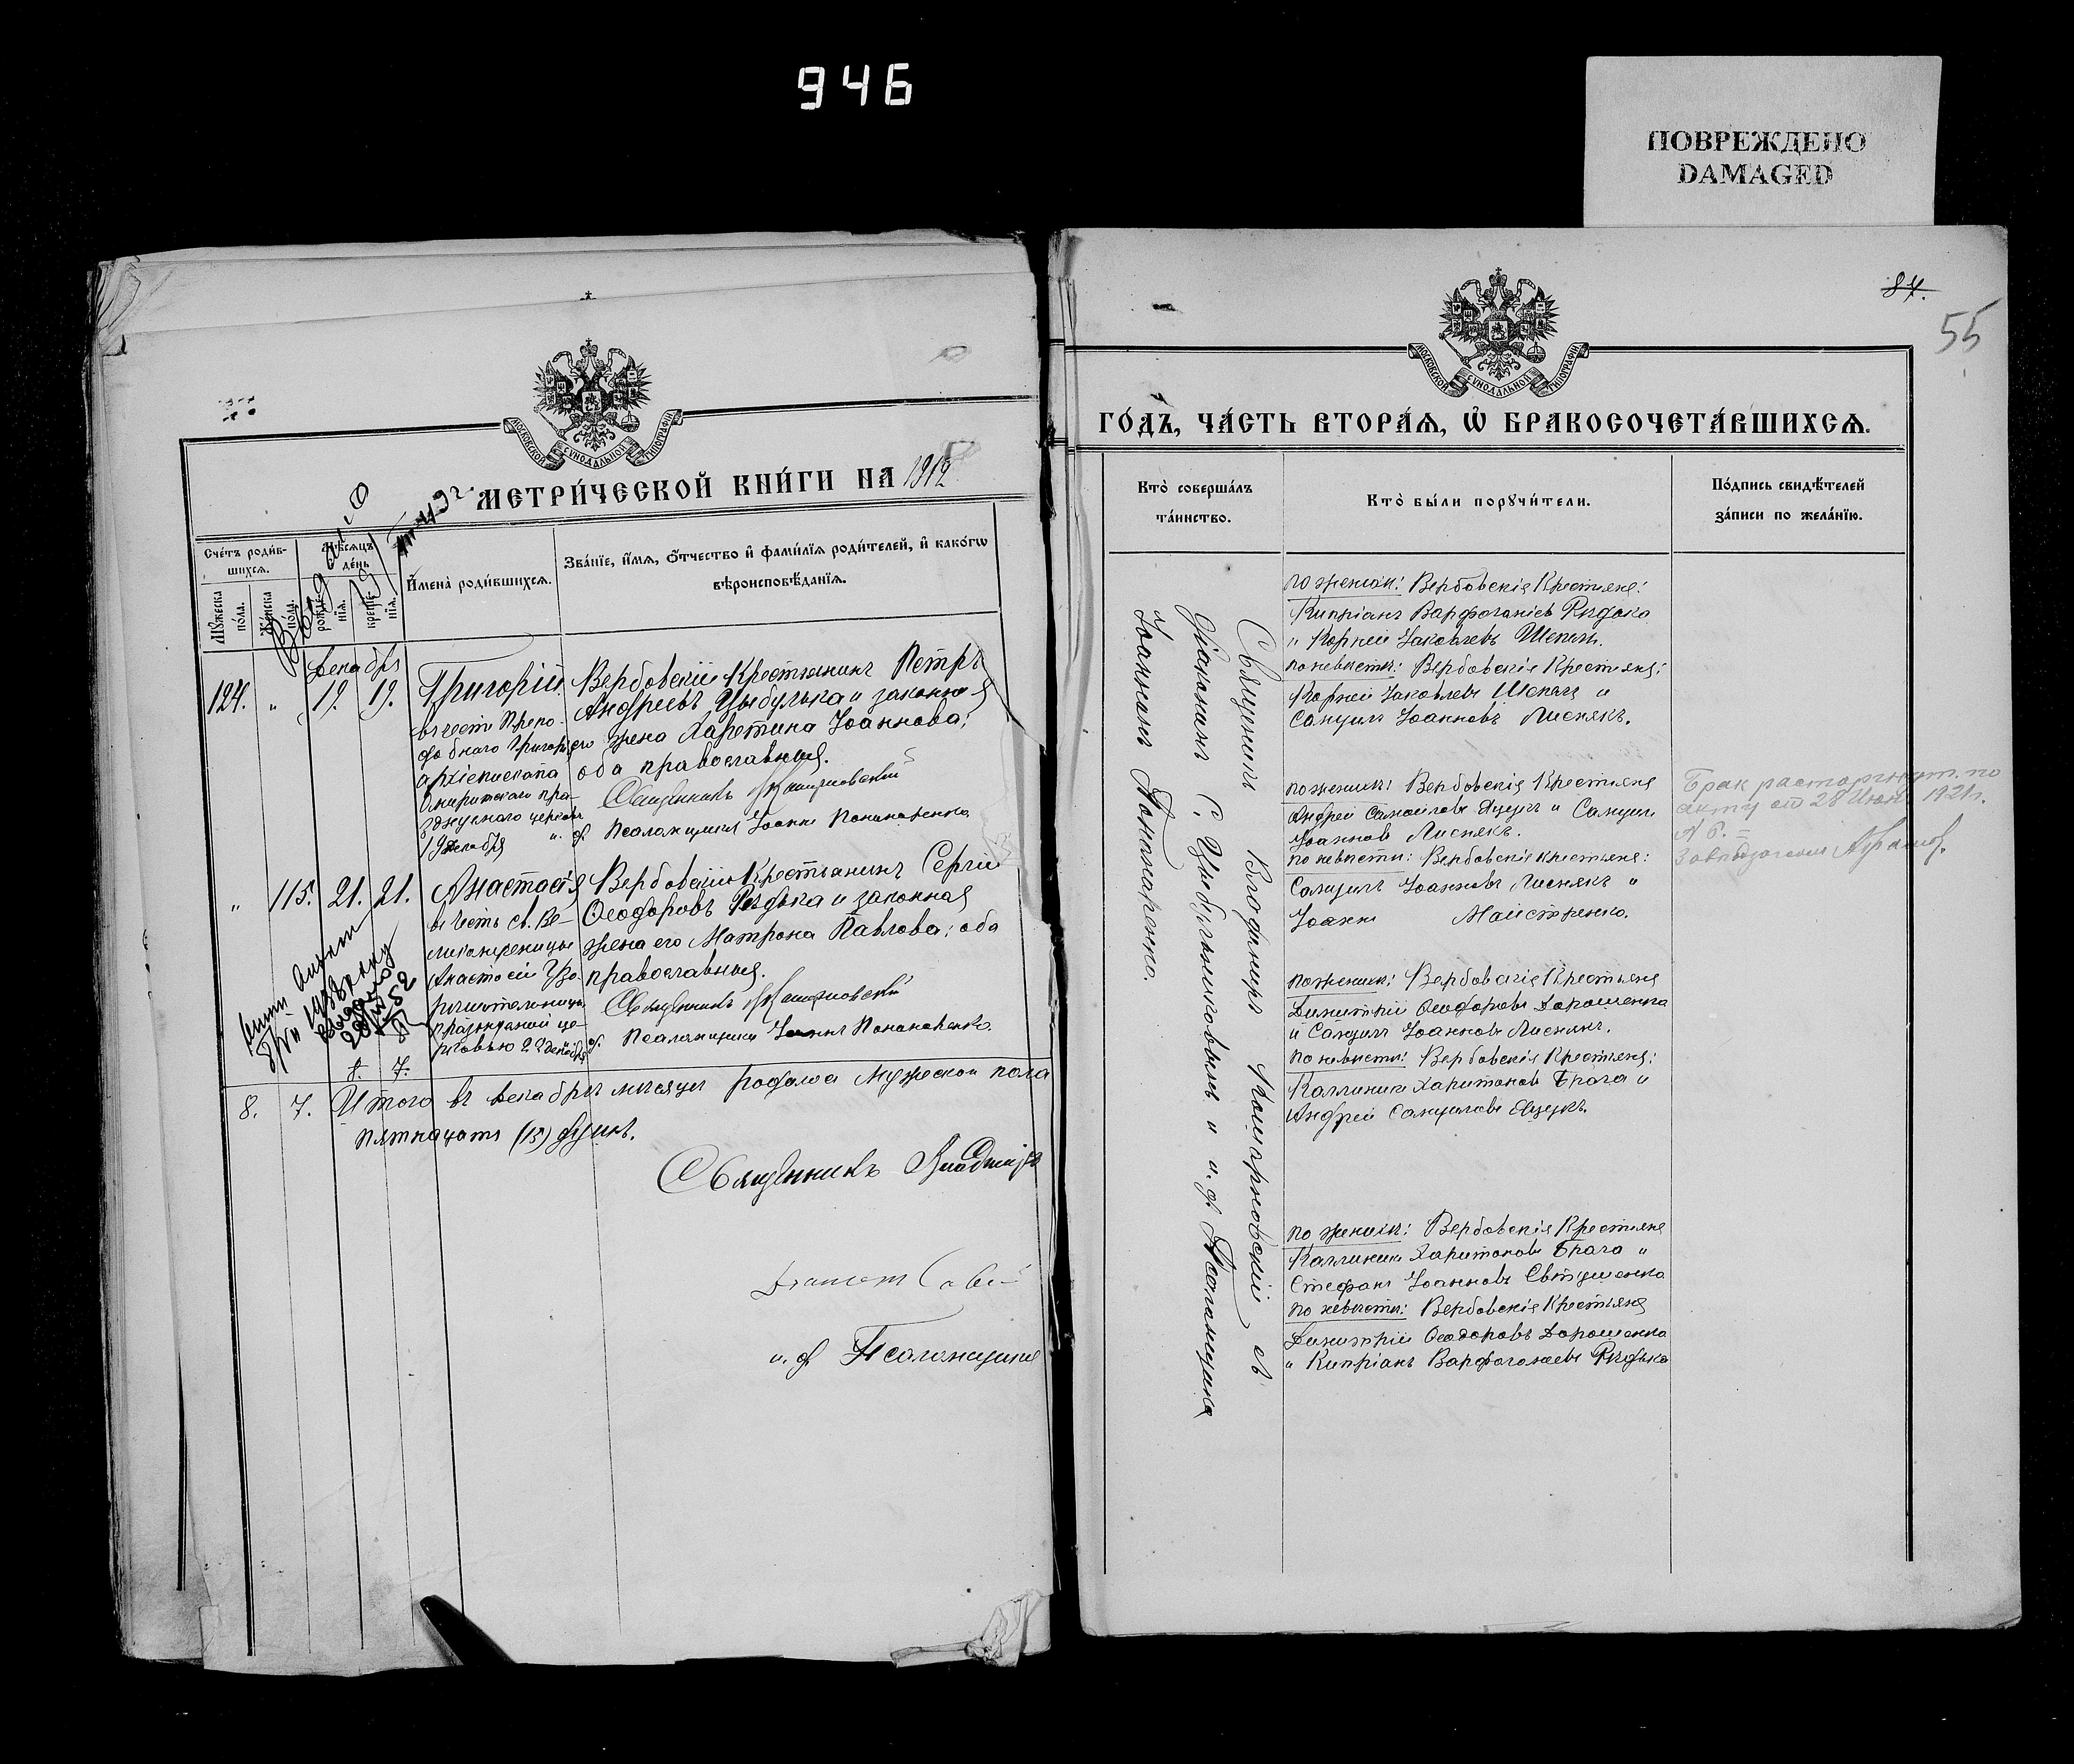 946
ПОВРЕЖДЕНО
DAMAGED
МОСКОВСКОЙ СѴНОДАЛЬНОЙ ТИПОГРАФІИ
МЕТРИ́ЧЕСКОЙ КНИ́ГИ НА 1912
Сче́тъ роди́в-
шихсѧ.
Мꙋ́жеска
по́ла.
Же́нска
по́ла.
Мѣ́сѧцъ
де́нь
рожде-
нїѧ.
креще-
нїѧ.
И҆мена̀ роди́вшихсѧ.
Зва́нїе, и҆́мѧ, ѻ҆́тчество и҆ фами́лїѧ роди́телей, и҆ како́гѡ
вѣроисповѣ́данїѧ.
Декабря
124. „ 19. 19. Григорій
въ честь Препо-
добнаго Григорія
архіепископа
Омиритскаго пра-
зднуемаго церковью
19 декабря
Вербовскій Крестьянинъ Петръ
Андреевъ Цыбулька и законная
его жена Харетина Іоаннова;
оба православныя.
Священникъ Кошарновскій
Псаломщикъ Іоаннъ Пономаренко
„ 115. 21. 21. Анастасія
въ честь св. Ве-
ликомученицы
Анастасіи Узо-
рѣшительницы
празднуемой це-
рковью 22 декабря
Вербовскій Крестьянинъ Сергій
Ѳеодоровъ Рѣдька и законная
жена его Матрона Павлова; оба
православныя.
Священникъ Кошарновскій
Псаломщикъ Іоаннъ Пономаренко
8. 7.
8. 7. Итого въ декабрѣ мѣсяцѣ родилося мужеска пола
пятнацать (15) душъ.
Священникъ Владиміръ
Діаконъ Савва
и. д. Псаломщика
84.
55
МОСКОВСКОЙ СѴНОДАЛЬНОЙ ТИПОГРАФІИ
ГО́ДЪ, ЧА́СТЬ ВТОРА́Ѧ, Ѡ҆ БРАКОСОЧЕТА́ВШИХСѦ.
Кто̀ соверша́лъ
та́инство.
Кто̀ бы́ли порꙋчи́тели.
По́дпись свидѣ́телей
за́писи по жела́нїю.
Священникъ Владиміръ Кошарновскій съ
Діакономъ С. Цыбульниковымъ и и. д. Псаломщика
Іоанномъ Пономаренко.
по женихѣ: Вербовскія Крестьяне:
Кипріанъ Варфоломіевъ Рѣдька
и Корній Іаковлевъ Шепель.
по невѣстѣ: Вербовскія Крестьяне:
Корній Іаковлевъ Шепель и
Самуилъ Іоанновъ Лиснякъ.
по женихѣ: Вербовскія Крестьяне
Андрей Самойловъ Яцукъ и Самуилъ
Іоанновъ Лиснякъ.
по невѣстѣ: Вербовскія крестьяне:
Самуилъ Іоанновъ Лиснякъ и
Іоаннъ Майстренко.
Брак расторгнут по
акту от 28 Июня 1921г.
№ 6.
по женихѣ: Вербовскія Крестьяне
Димитрій Ѳеодоровъ Дорошенко
и Самуилъ Іоанновъ Лиснякъ.
по невѣстѣ: Вербовскія Крестьяне:
Каллиникъ Харитоновъ Брага и
Андрей Самуиловъ Яцукъ.
по женихѣ: Вербовскія Крестьяне
Каллиникъ Харитоновъ Брага и
Стефанъ Іоанновъ Евтушенко
по невѣстѣ: Вербовскія Крестьяне
Димитрій Ѳеодоровъ Дорошенко
и Кипріанъ Варфоломіевъ Рѣдька